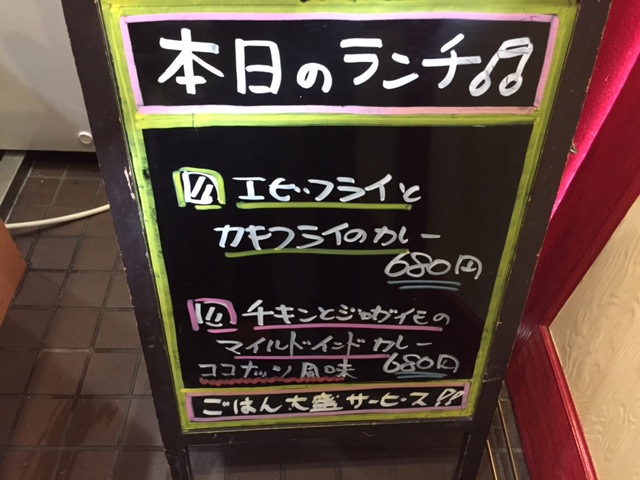 本日のランチ♫
エビフライと
カキフライのカレー
680円
チキンとジャガイモの
マイルドインドカレー
ココナッツ風味 680円
ごはん大盛サービス!!